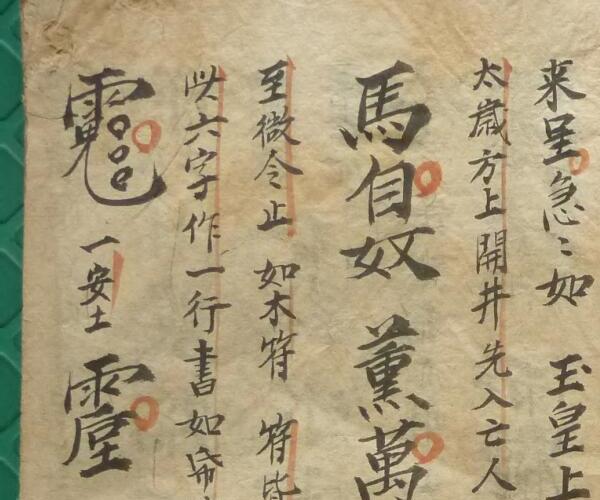 来呈急〻如 玉皇上
太歲方上開井先入亡人
馬自奴 薰萬
至微令止 如木符 符皆
以六字作一行書如帋
一安土